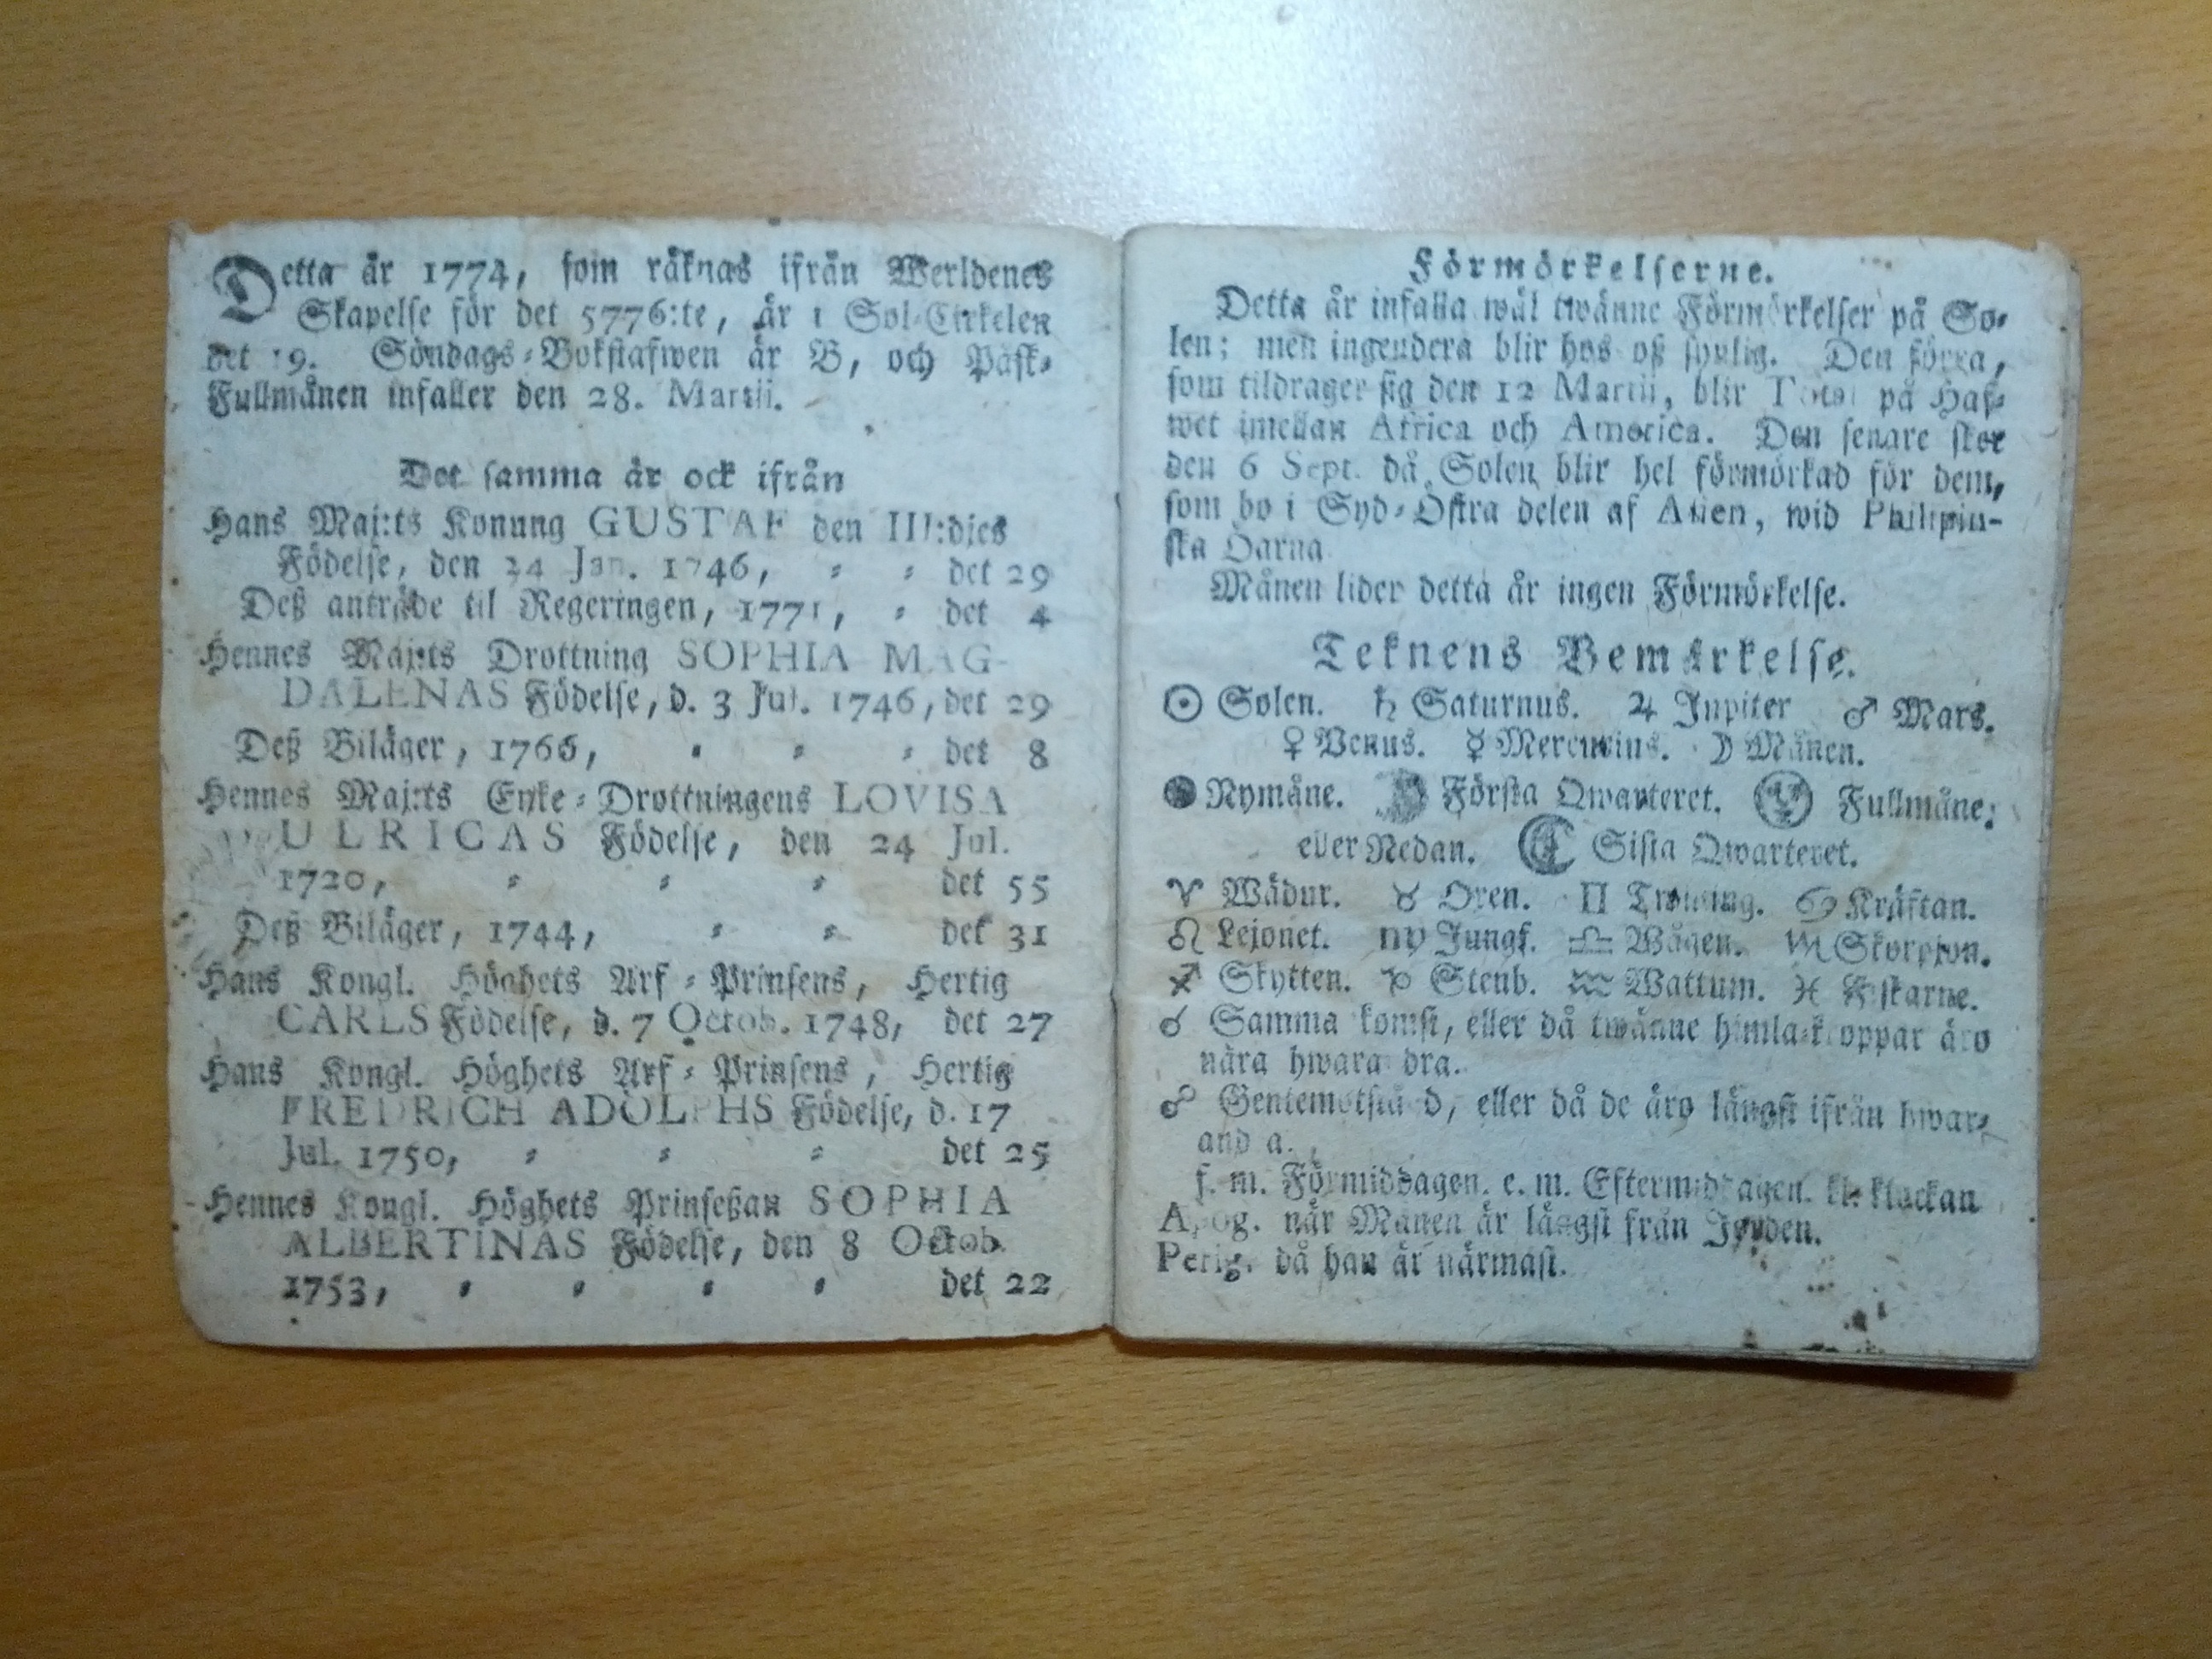 Detta år 1774, som räknas ifrån Werldenes
Skapelse för det 5776:te, är i Sol-Cirkelen
det 19. Söndags-Bokstafwen är B, och Påsk-
Fullmånen infaller den 28. Martii.
Det samma är ock ifrån
Hans Maj:ts Konung GUSTAF den III:djes
Födelse, den 24 Jan. 1746, det 29
Deß anträde til Regeringen, 1771, det 4
Hennes Maj:ts Drottning SOPHIA MAG-
DALENAS Födelse, d. 3 Jul. 1746, det 29
Deß Biläger, 1766, det 8
Hennes Maj:ts Enke-Drottningens LOVISA
ULRICAS Födelse, den 24 Jul.
1720, det 55
Deß Biläger, 1744, det 31
Hans Kongl. Höghets Arf-Prinsens, Hertig
CARLS Födelse, d. 7 Octob. 1748, det 27
Hans Kongl. Höghets Arf-Prinsens, Hertig
FREDRICH ADOLPHS Födelse, d. 17
Jul. 1750, det 25
Hennes Kongl. Höghets Prinseßan SOPHIA
ALBERTINAS Födelse, den 8 Octob.
1753, det 22
Förmörkelserne.
Detta år infalla wäl twänne Förmörkelser på So-
len; men ingendera blir hos oß synlig. Den förra,
som tildrager sig den 12 Martii, blir Total på Haf-
wet imellan Africa och America. Den senare sker
den 6 Sept. då Solen blir hel förmörkad för dem,
som bo i Syd-Östra delen af Asien, wid Philipin-
ska Öarna
Månen lider detta år ingen Förmörkelse.
Teknens Bemärkelse.
☉ Solen. ♄ Saturnus. ♃ Jupiter ♂ Mars.
♀ Venus. ☿ Mercurius. ☽ Månen.
Nymåne. Första Qwarteret. Fullmåne;
eller Nedan. Sista Qwarteret.
♈ Wädur. ♉ Oxen. ♊ Twilling. ♋ Kräftan.
♌ Lejonet. ♍ Jungf. ♎ Wågen. ♏ Skorpion.
♐ Skytten. ♑ Stenb. ♒ Wattum. ♓ Fiskarne.
☌ Samma komst, eller då twänne himla-kroppar äro
nära hwarandra.
☍ Gentemotstånd, eller då de äro längst ifrån hwar-
andra.
f. m. Förmiddagen. e. m. Eftermiddagen. kl. klockan
Apog. när Månen är längst från Jorden.
Perig. då han är närmast.